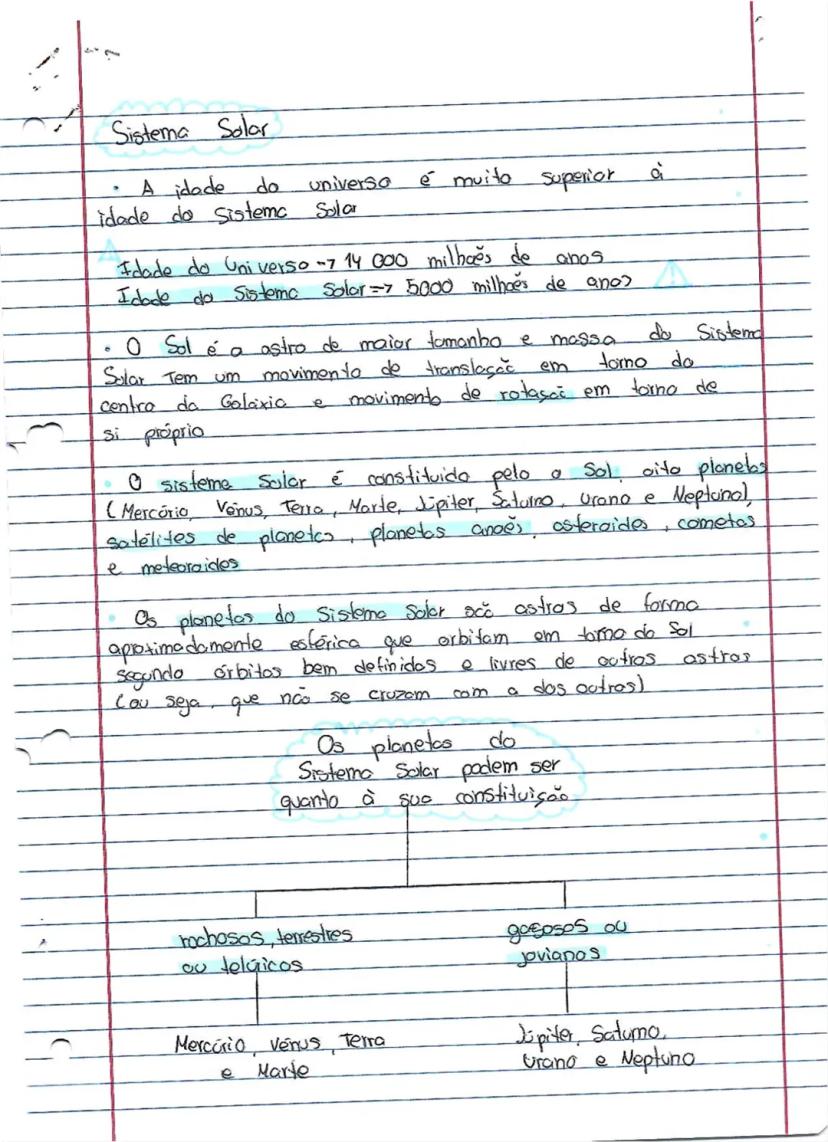 Sistema Solar
· A idade do universo é muito superior á
idade do Sistema Solar
Idade do Universo -> 14 000 milhões de anos
Idade do Sistema Solar => 5000 milhões de anos
· O Sol é o astro de maior tamanho e massa do Sistema
Solar Tem um movimento de translação em torno do
centro da Galáxia e movimento de rotação em torno de
si próprio
· O sistema Solar é constituido pelo o Sol, oito planetas
(Mercúrio, Vénus, Terra, Marte, Júpiter, Saturno, Urano e Neptuno),
satélites de planetas, planetas anões, asteroides, cometas
e meteoroides
· Os planetas do Sistema Solar são astros de forma
aproximadamente esférica que orbitam em torno do Sol
segundo órbitas bem definidas e livres de outros astros
(ou seja, que não se cruzam com a dos outros)
Os planetas do
Sistema Solar podem ser
quanto à sua constituição
rochosos, terrestres
ou telúricos
gasosos ou
jovianos
Mercúrio, Vénus, Terra
e Marte
Júpiter, Saturno,
Urano e Neptuno